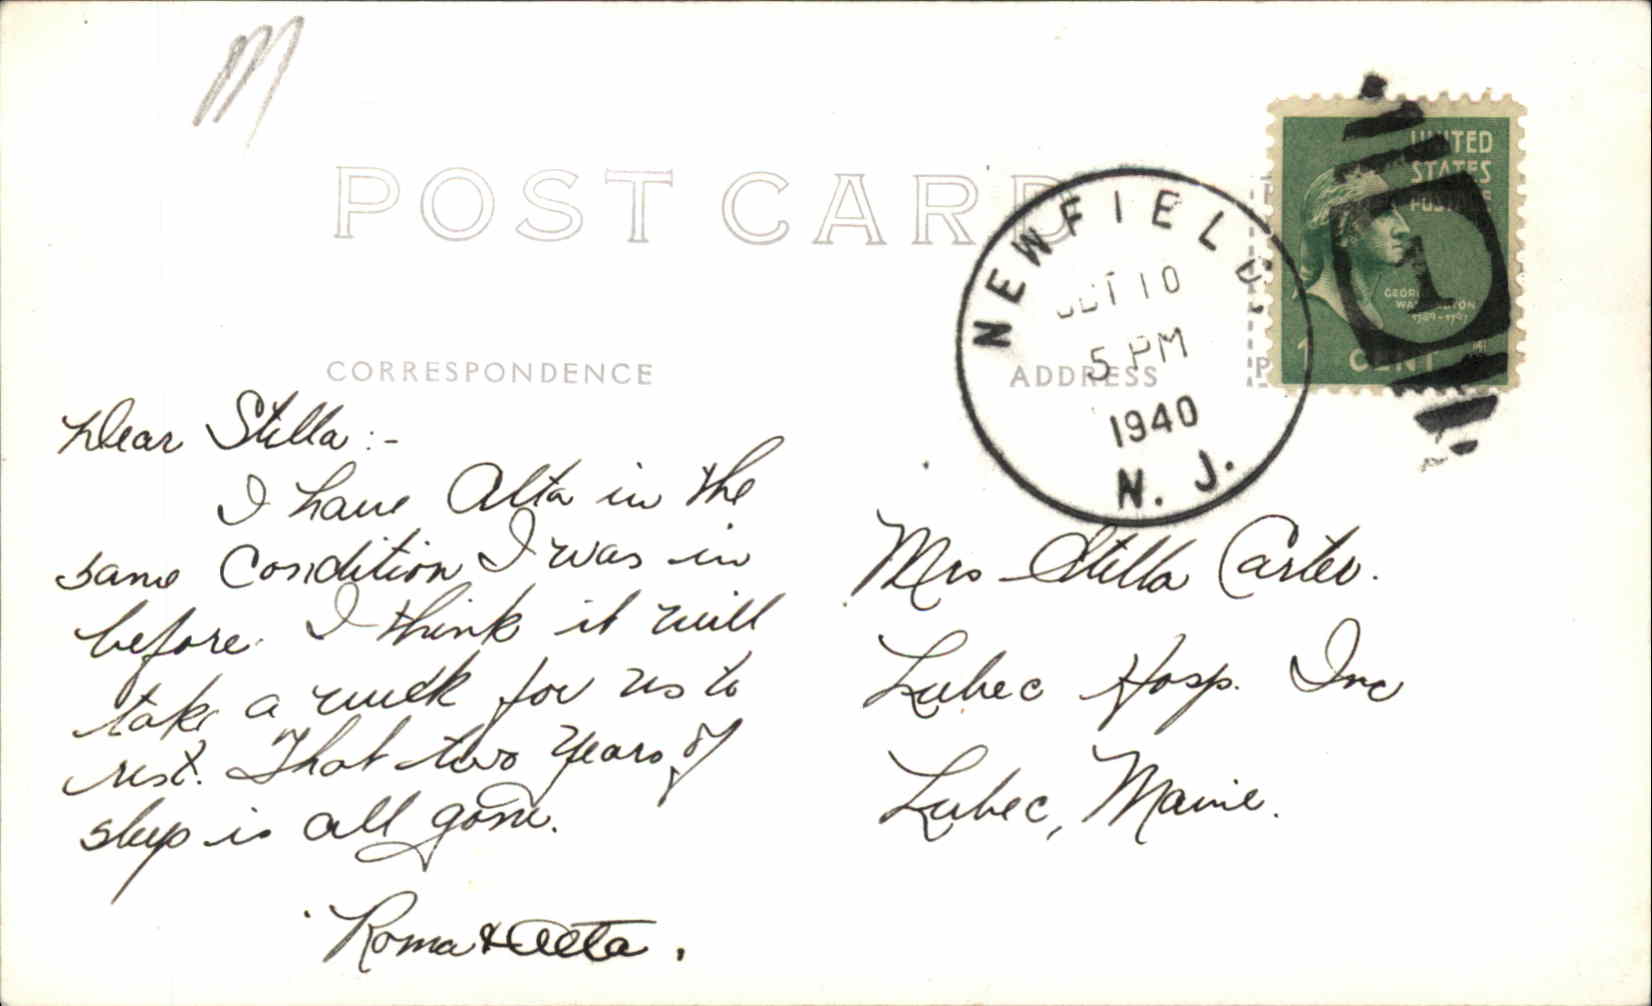 M
POST CARD
NEWFIELD
OCT 10
5 PM
1940
N. J.
UNITED
STATES
POSTAGE
GEORGE
WASHINGTON
1789-1797
1 CENT
CORRESPONDENCE
ADDRESS
P
Dear Stella:-
I have Alta in the
same condition I was in
before. I think it will
take a week for us to
rest. That two years of
sleep is all gone.
Roma & Alta.
Mrs Stella Carter.
Lubec Hosp. Inc
Lubec, Maine.